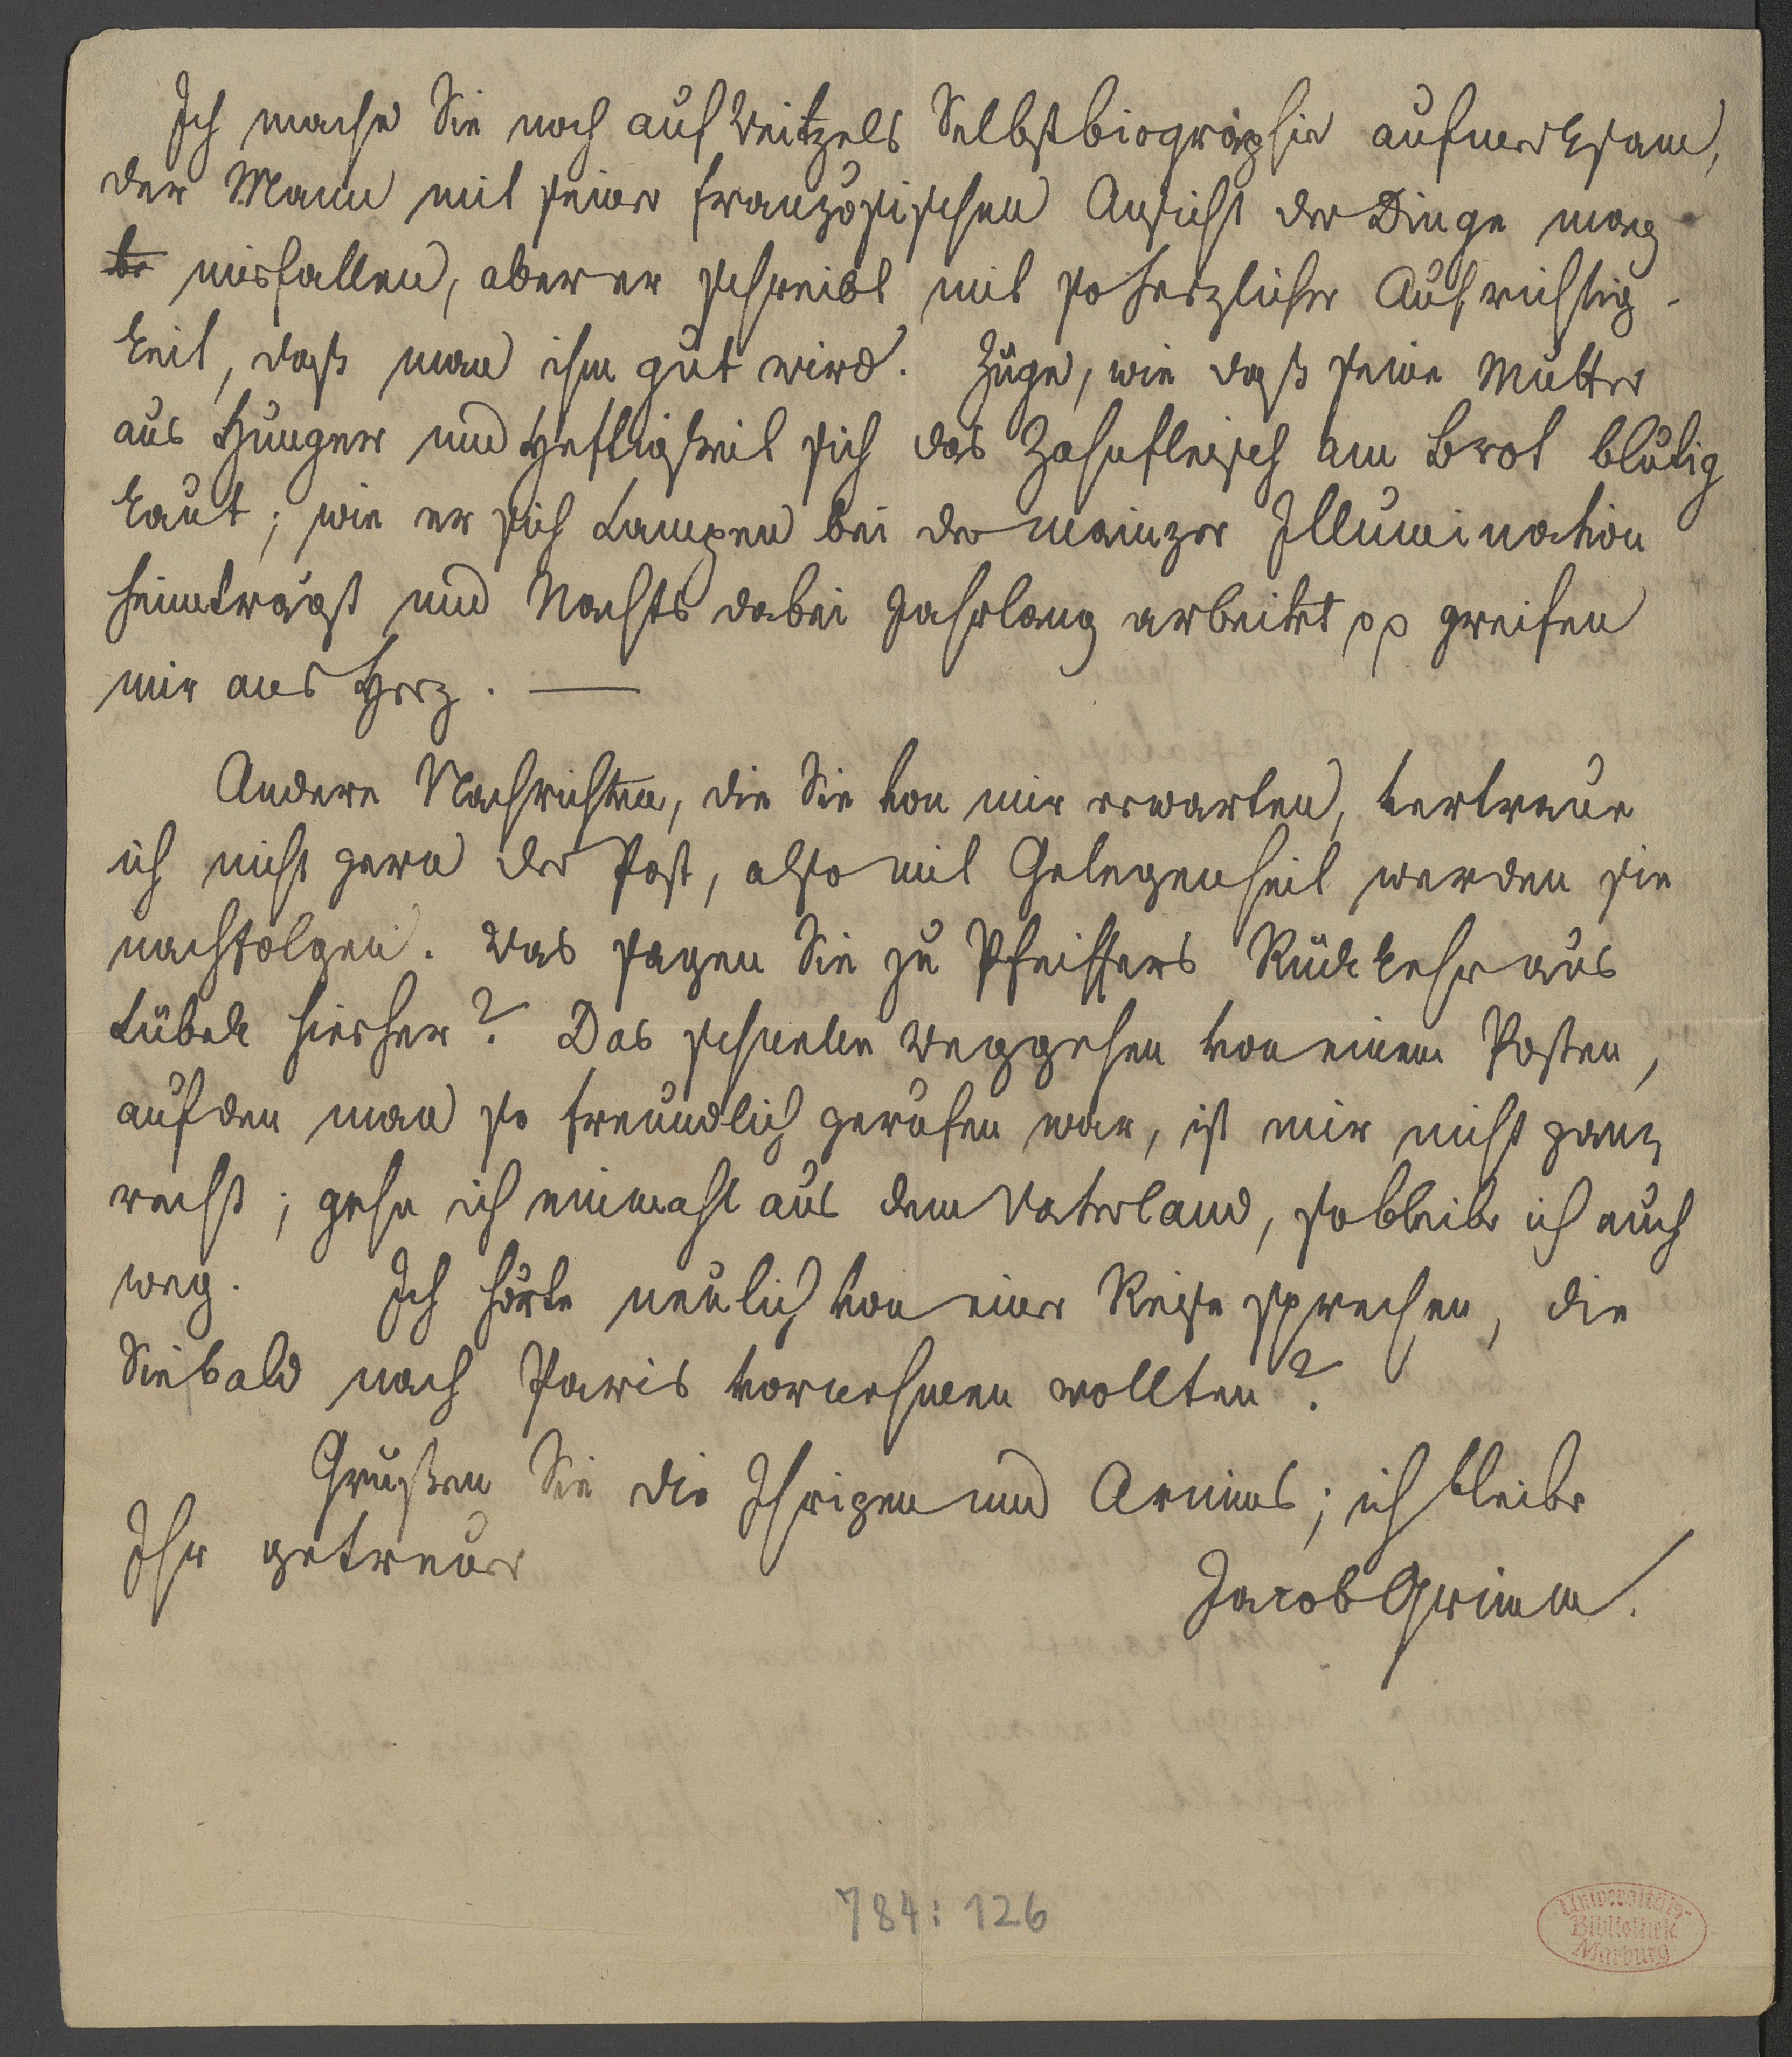 Ich mache Sie noch auf Weitzels Selbstbiographie aufmerksam,
der Mann mit seiner französischen Ansicht der Dinge mag
misfallen, aber er schreibt mit so herzlicher Aufrichtig-
keit, daß man ihm gut wird. Züge, wie daß seine Mutter
aus Hunger und Heftigkeit sich das Zahnfleisch am Brot blutig
kaut; wie er sich Lampen bei der mainzer Illumination
heimträgt und Nachts dabei Jahrlang arbeitet pp greifen
mir ans Herz. —
Andere Nachrichten, die Sie von mir erwarten, vertraue
ich nicht gern der Post, also mit Gelegenheit werden sie
nachfolgen. Was sagen Sie zu Pfeiffers Rückkehr aus
Lübek hierher? Das schnelle Weggehen von einem Posten,
auf den man so freundlich gerufen war, ist mir nicht ganz
recht; gehe ich einmahl aus dem Vaterland, so bleibe ich auch
weg. Ich hörte neulich von einer Reise sprechen, die
Sie bald nach Paris vornehmen wollten?
Grüßen Sie die Ihrigen und Arnims; ich bleibe
Ihr getreuer
Jacob Grimm.
784:126
Universitäts-
Bibliothek
Marburg